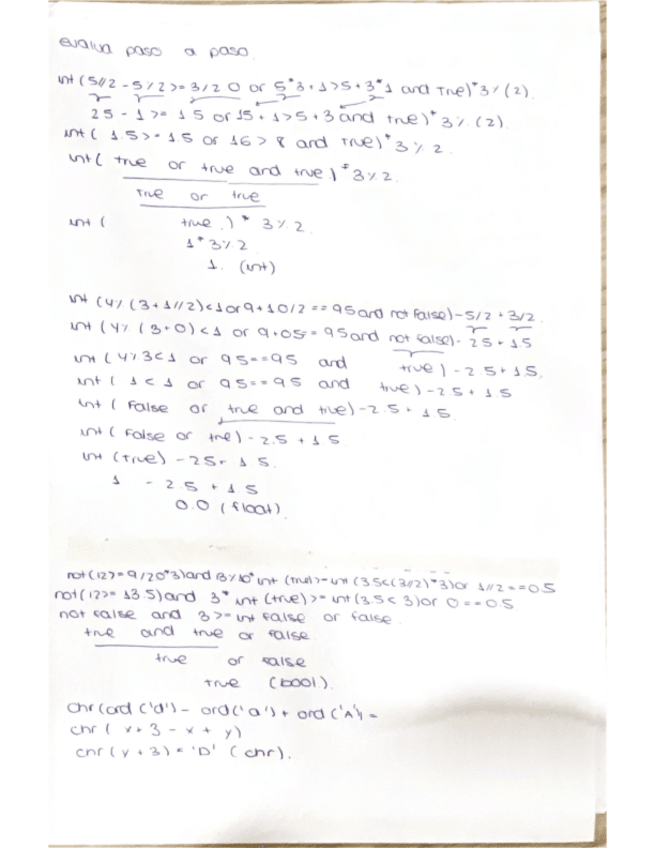 evalua paso a paso.
int (5//2 - 5%2 >= 3/2 0 or 5*3+1>5+3*1 and True)*3%(2).
25 - 1 >= 15 or 15 + 1 > 5 + 3 and true)*3%.(2).
int( 1.5 >= 1.5 or 16 > 8 and true)*3%2.
int( true or true and true)*3%2.
true or true
int ( true.)* 3%2.
1*3%2
1. (int)
int (4%(3+1//2)<1or9+10/2==95and not False)-5/2+3/2.
int (4%(3+0)<1 or 9+05== 95and not false)-25+1.5
int (4%3<1 or 95==95 and true)-2.5+1.5.
int ( 1<1 or 95==95 and true)-2.5+1.5
int ( False or true and true)-2.5+1.5.
int ( False or true)-2.5+1.5
int (true) -25+ 1.5.
1 - 2.5 + 1.5
0.0 (float).
not(12>=9/20*3)and 13%10*int(true)>=int(3.5<(3//2)*3)or 1//2==0.5
not(12>= 13.5)and 3* int(true)>= int(3.5< 3)or 0==0.5
not false and 3>=int false or false
true and true or false
true or false
true (bool).
chr(ord('d')-ord('a')+ord('A')=
chr ( x+3-x+y)
chr(y+3)='D' (chr).